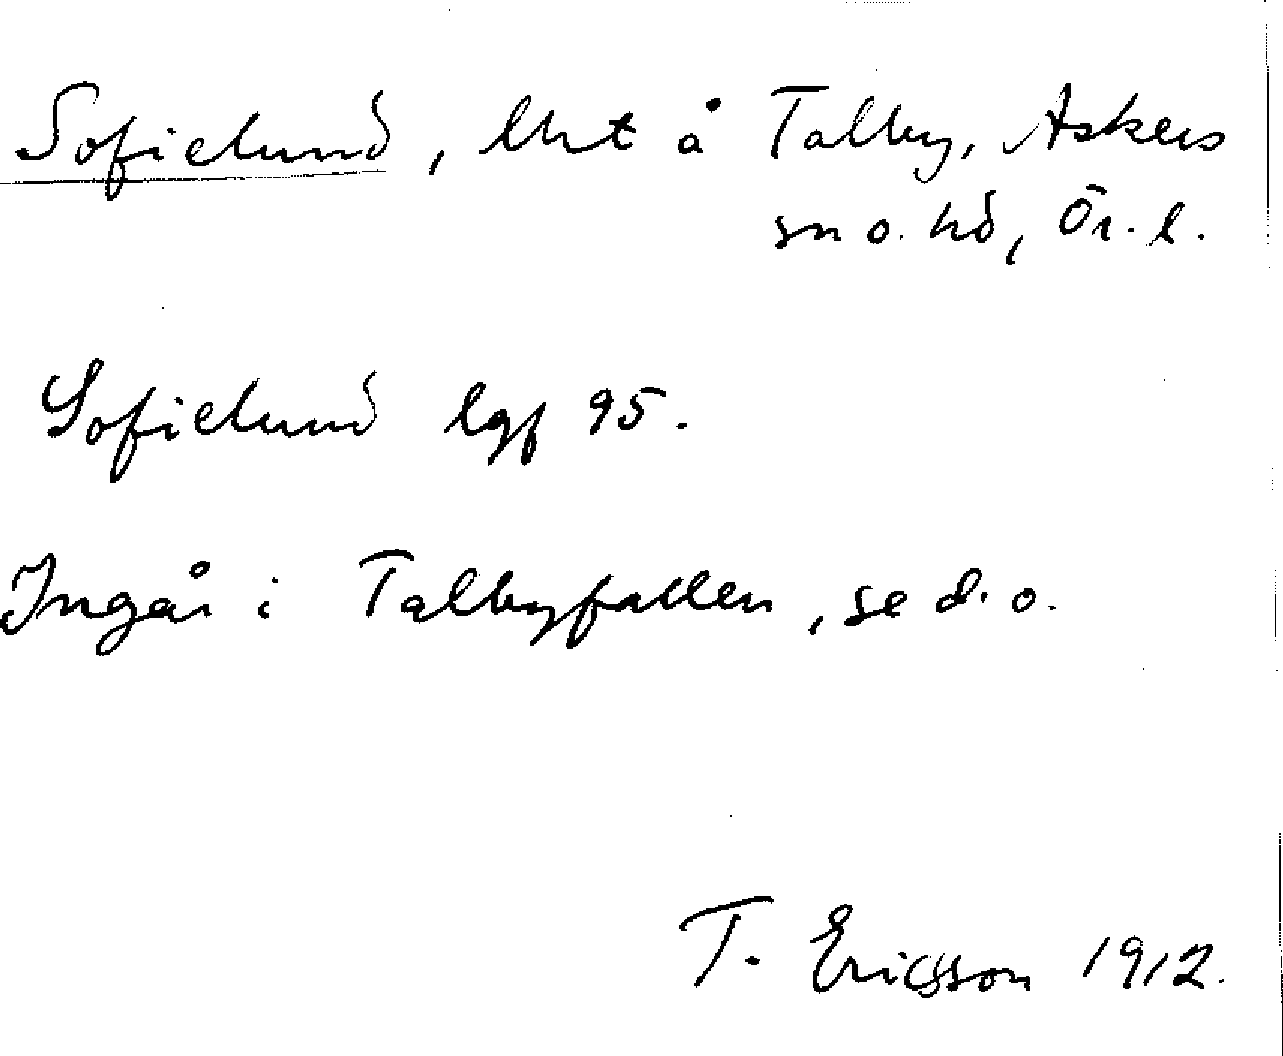 Sofielund, lht å Talby, Askers
sn o. hd, Ör. l.
Sofielund lgf 95.
Ingår i Talbyfallen, se d. o.
T. Ericsson 1912.